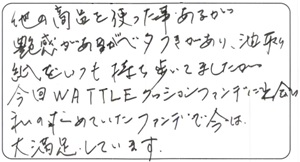 他の商品を使った事あるが
艶感があるがベタつきがあり、油取り
紙をいつも持ち歩いてましたが
今回WATTLEクッションファンデに出会い
私の求めていたファンデで今は
大満足しています。